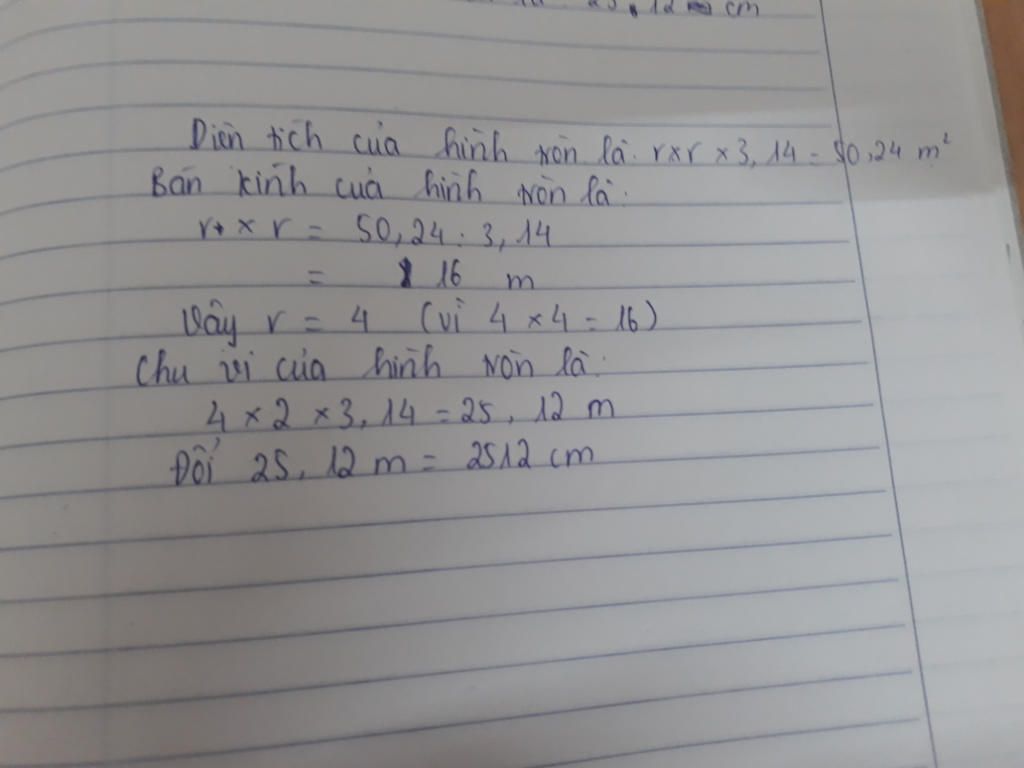 25,12 cm
Diện tích của hình tròn là: r x r x 3,14 = 50,24 m²
Bán kính của hình tròn là:
r x r = 50,24 : 3,14
= 16 m
Vậy r = 4 (vì 4 x 4 = 16)
Chu vi của hình tròn là:
4 x 2 x 3,14 = 25,12 m
Đổi 25,12 m = 2512 cm